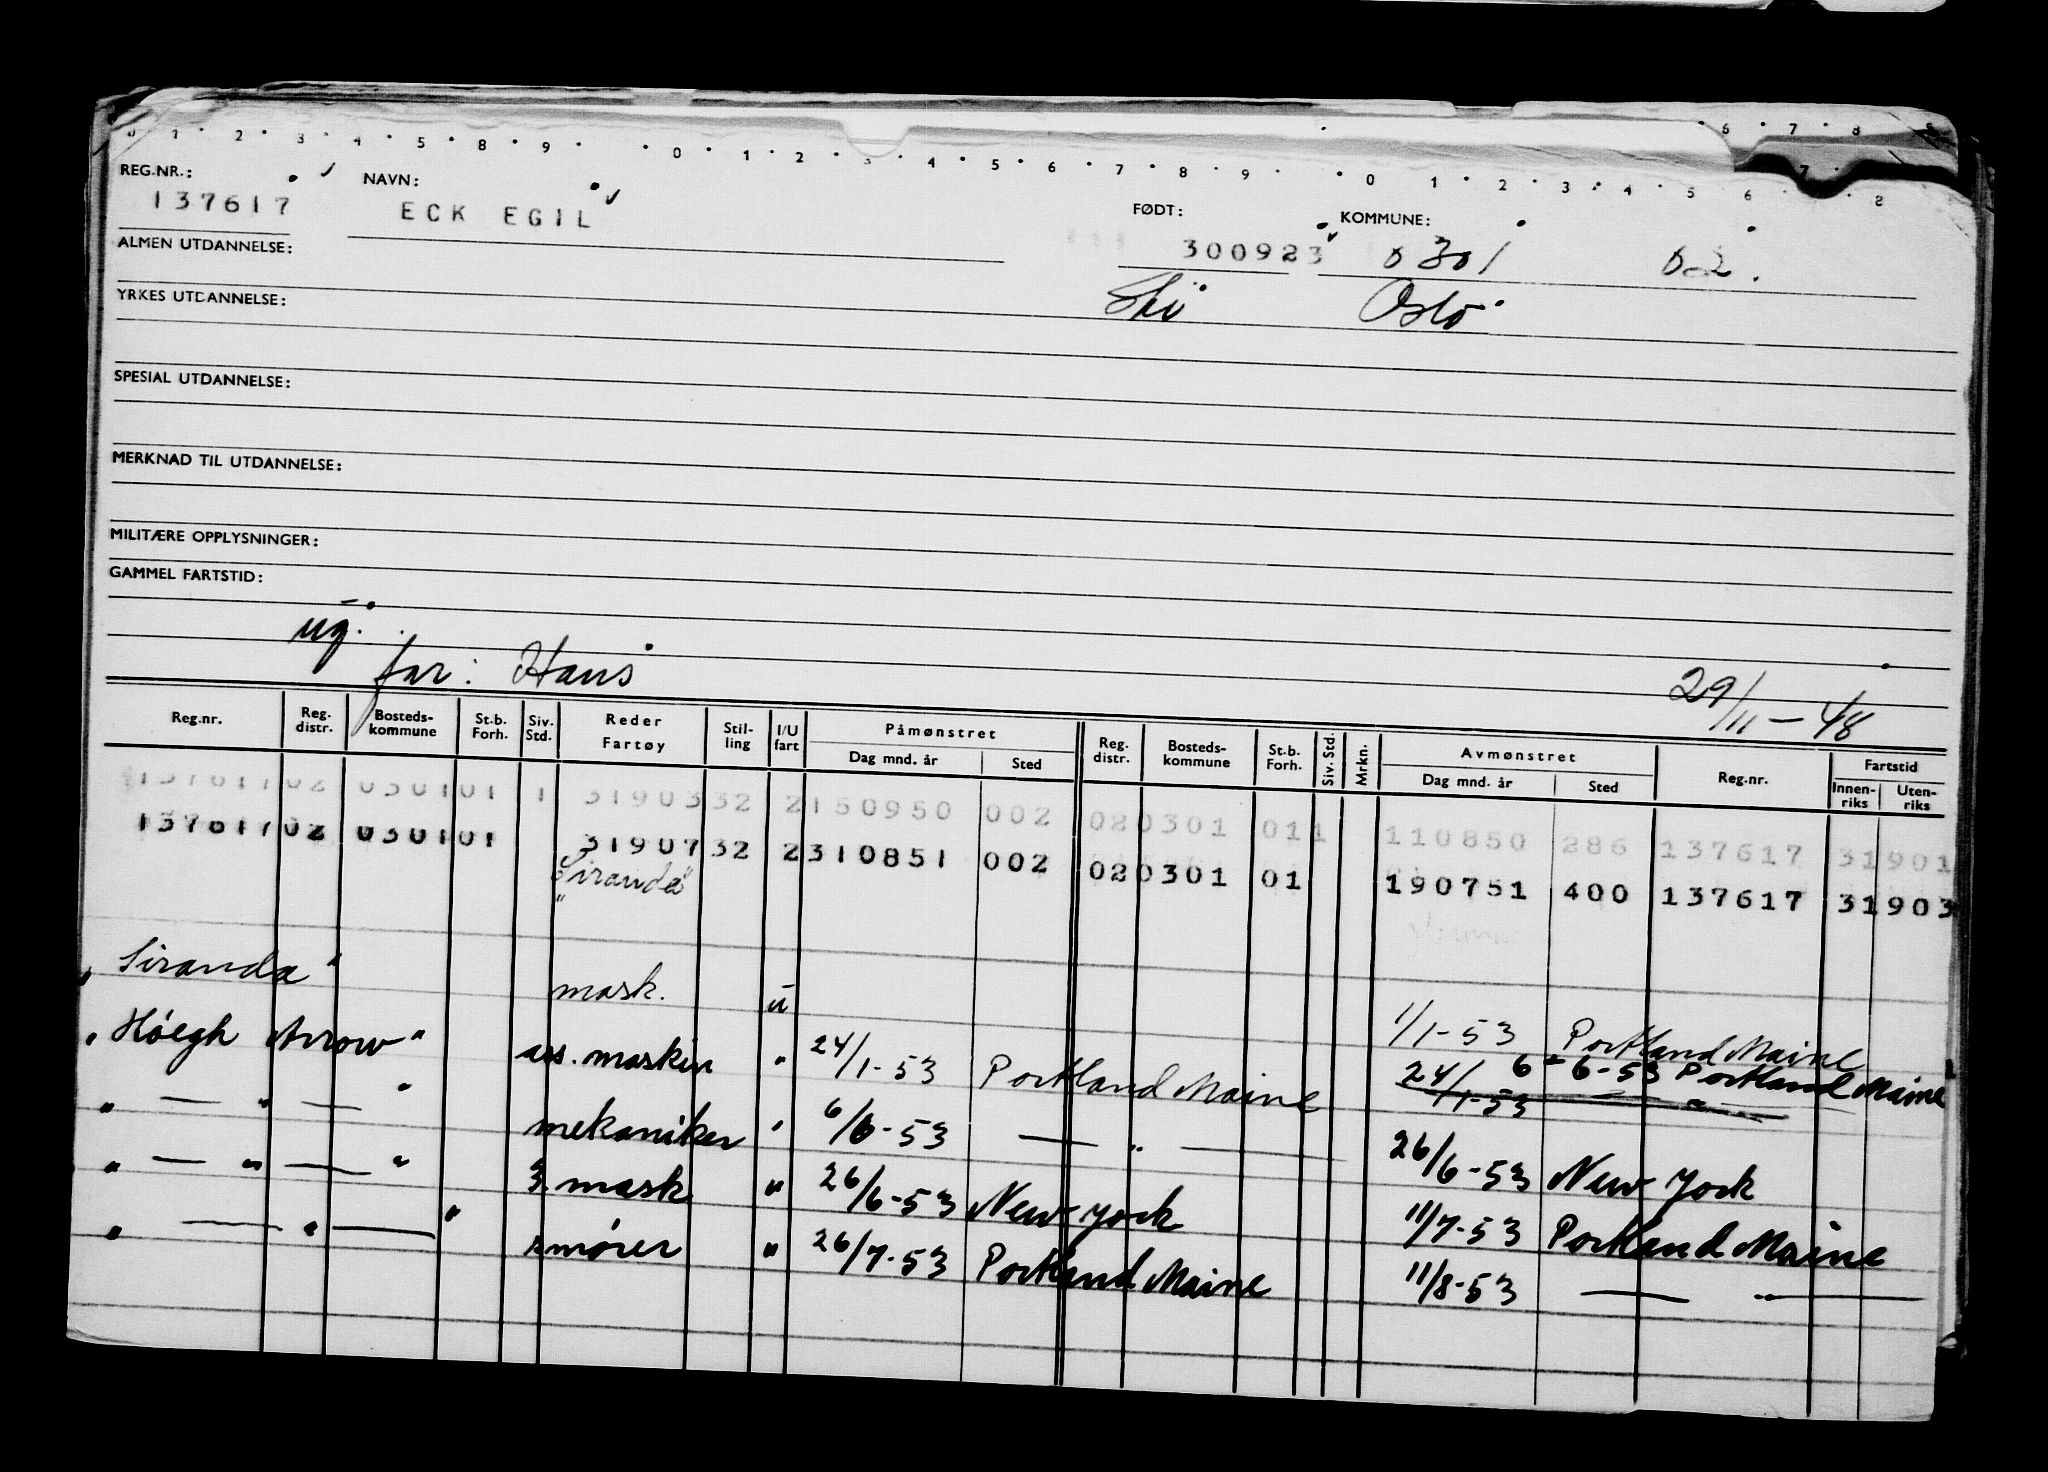 0 1 2 3 4 5 8 9 0 1 2 3 4 5 6 7 8 9 0 1 2 3 4 5 6 7 8
6 7 8 9
REG.NR.: NAVN: FØDT: KOMMUNE:
137617 ECK EGIL 300923 0301 02.
ALMEN UTDANNELSE:
Ski Oslo
YRKES UTDANNELSE:
SPESIAL UTDANNELSE:
MERKNAD TIL UTDANNELSE:
MILITÆRE OPPLYSNINGER:
GAMMEL FARTSTID:
ug.
far: Hans 29/11-48
Reg.nr. Reg. distr. Bosteds-kommune St.b. Forh. Siv. Std. Reder Fartøy Stil-ling I/U fart Påmønstret Dag mnd. år Sted Reg. distr. Bosteds-kommune St.b. Forh. Siv. Std. Mrkn. Avmønstret Dag mnd. år Sted Reg.nr. Fartstid Innen-riks Uten-riks
137617 02 0301 01 1 31903 32 2 150950 002 02 0301 01 1 110850 286 137617 31901
137617 02 0301 01 31907 32 2 310851 002 02 0301 01 190751 400 137617 31903
"Siranda"
"Siranda" mask. u 1/1-53 Portland Maine
"Höegh Arrow" ass. maskin " 24/1-53 Portland Maine 24/1-53 6-6-53 Portland Maine
" — " — " mekaniker " 6/6-53 — " — 26/6-53 New York
" — " — " 3. mask " 26/6-53 New York 11/7-53 Portland Maine
" — " — " smører " 26/7-53 Portland Maine 11/8-53 — " —